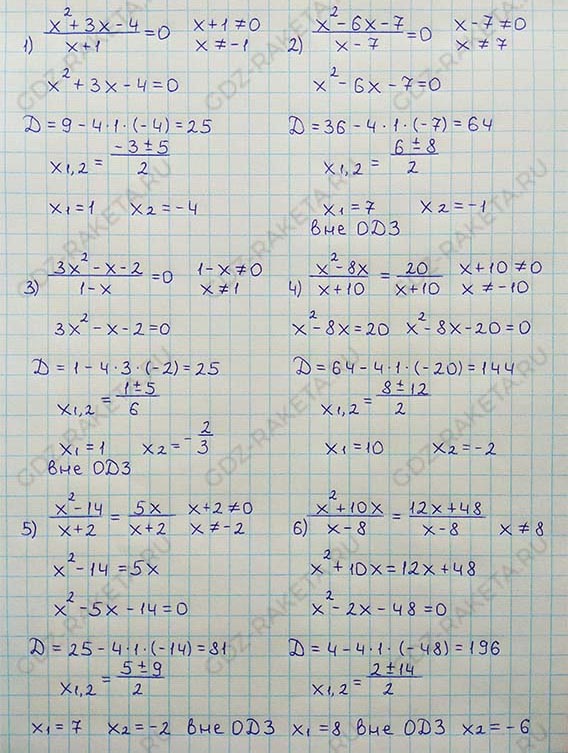 1) x²+3x-4/x+1 = 0 x+1≠0
x≠-1
x²+3x-4=0
D=9-4·1·(-4)=25
x₁,₂ = -3±5/2
x₁=1 x₂=-4
2) x²-6x-7/x-7 = 0 x-7≠0
x≠7
x²-6x-7=0
D=36-4·1·(-7)=64
x₁,₂ = 6±8/2
x₁=7 x₂=-1
вне ОДЗ
3) 3x²-x-2/1-x = 0 1-x≠0
x≠1
3x²-x-2=0
D=1-4·3·(-2)=25
x₁,₂ = 1±5/6
x₁=1 x₂=-2/3
вне ОДЗ
4) x²-8x/x+10 = 20/x+10 x+10≠0
x≠-10
x²-8x=20 x²-8x-20=0
D=64-4·1·(-20)=144
x₁,₂ = 8±12/2
x₁=10 x₂=-2
5) x²-14/x+2 = 5x/x+2 x+2≠0
x≠-2
x²-14=5x
x²-5x-14=0
D=25-4·1·(-14)=81
x₁,₂ = 5±9/2
x₁=7 x₂=-2 вне ОДЗ
6) x²+10x/x-8 = 12x+48/x-8 x≠8
x²+10x=12x+48
x²-2x-48=0
D=4-4·1·(-48)=196
x₁,₂ = 2±14/2
x₁=8 вне ОДЗ x₂=-6
GDZ-RAKETA.RU